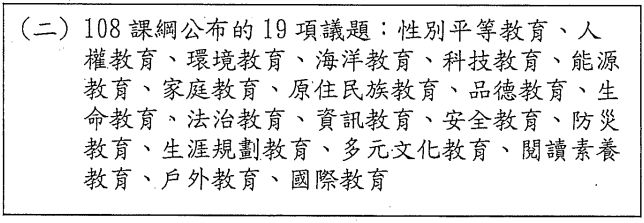 (二) 108 課綱公布的 19 項議題：性別平等教育、人
權教育、環境教育、海洋教育、科技教育、能源
教育、家庭教育、原住民族教育、品德教育、生
命教育、法治教育、資訊教育、安全教育、防災
教育、生涯規劃教育、多元文化教育、閱讀素養
教育、戶外教育、國際教育